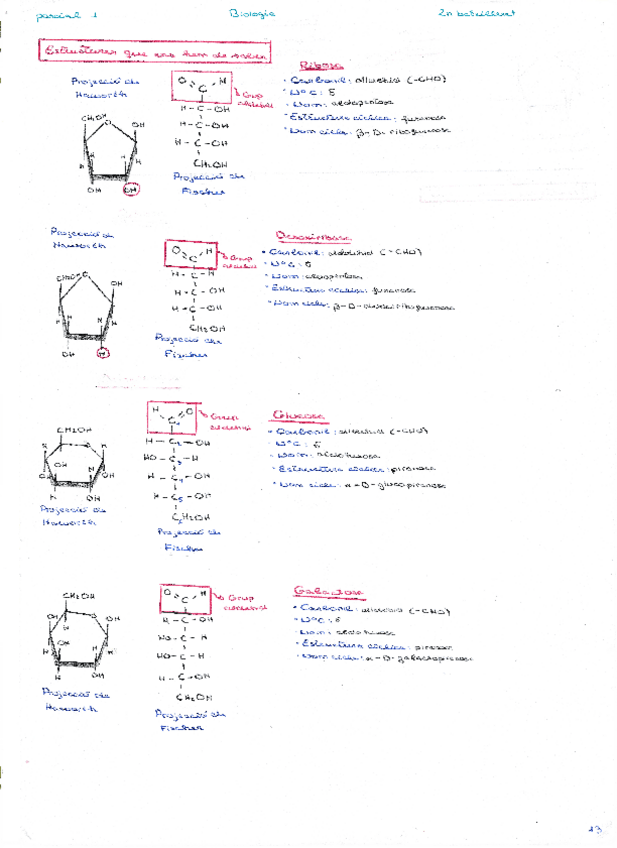 parcial 1
Biologia
2n batxillerat
Estructures que ens hem de saber
Projecció de
Haworth
CH₂OH
O
OH
H
H
OH
OH
O
H
C
H-C-OH
H-C-OH
H-C-OH
CH₂OH
Grup
aldehid
Projecció de
Fischer
Ribosa
• Carbonil: aldehid (-CHO)
• Nº C: 5
• Nom: aldopentosa
• Estructura cíclica: furanosa
• Nom cicle: β-D-ribofuranosa
Projecció de
Haworth
O
OH
OH
H
O
H
C
H-C-H
H-C-OH
H-C-OH
CH₂OH
Grup
Projecció de
Fischer
Desoxiribosa
• Carbonil: aldehid (-CHO)
• Nº C: 5
• Nom: aldopentosa
• Estructura cíclica: furanosa
• Nom cicle: β-D-desoxiribofuranosa
CH₂OH
OH
OH
H
OH
Projecció de
Haworth
H
O
C₁
H-C₂-OH
HO-C₃-H
H-C₄-OH
H-C₅-OH
C₆H₂OH
Grup
Projecció de
Fischer
Glucosa
• Carbonil: aldehid (-CHO)
• Nº C: 6
• Nom: aldohexosa
• Estructura cíclica: piranosa
• Nom cicle: α-D-glucopiranosa
CH₂OH
O
OH
H
OH
H
H
OH
Projecció de
Haworth
O
H
C
H-C-OH
HO-C-H
HO-C-H
H-C-OH
CH₂OH
Grup
Projecció de
Fischer
Galactosa
• Carbonil: aldehid (-CHO)
• Nº C: 6
• Nom: aldohexosa
• Estructura cíclica: piranosa
• Nom cicle: α-D-galactopiranosa
13